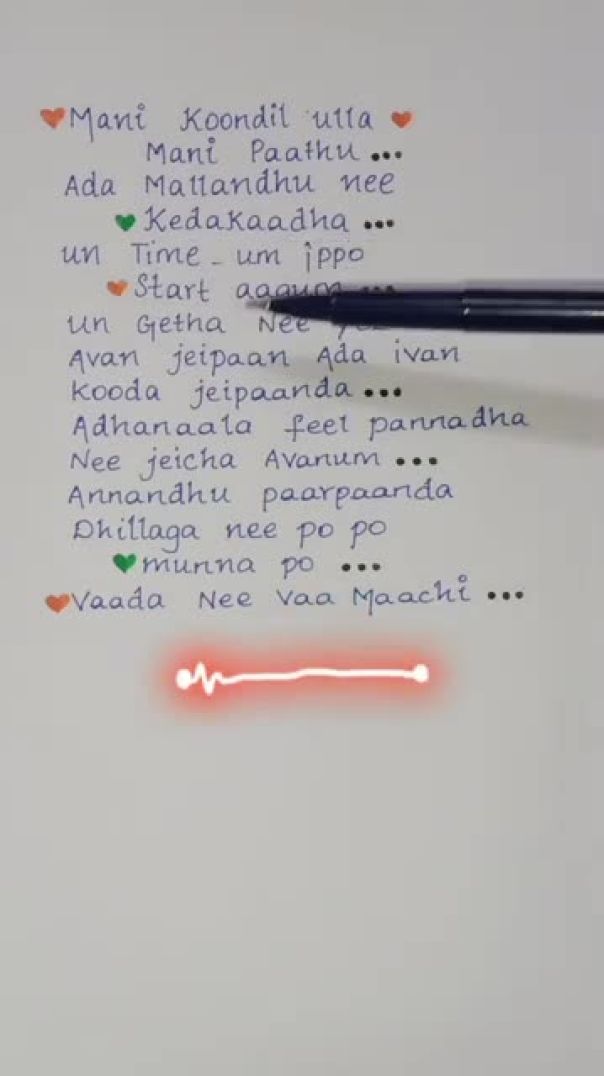 Mani Koondil ulla
Mani Paathu ...
Ada Mallandhu nee
Kedakaadha ...
un Time - um ippo
Start aagum ...
un Getha Nee
Avan jeipaan Ada ivan
Kooda jeipaanda ...
Adhanaala feel pannadha
Nee jeicha Avanum ...
Annandhu paarpaanda
Dhillaga nee po po
munna po ...
Vaada Nee Vaa Maachi ...